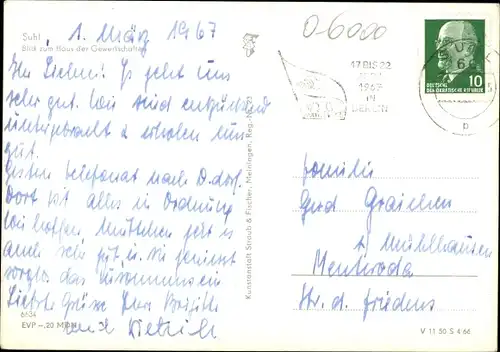 Suhl
Blick zum Haus der Gewerkschaften
1. März 1967
Ihr Lieben! Es geht uns
sehr gut. Wir sind entzückend
untergebracht u. erholen uns
gut.
Gestern Telefonat nach D.dorf.
Dort ist alles in Ordnung
Wir hoffen, Muttchen geht es
auch sehr gut, u. Sie genießt
sorglos das Zusammensein
Liebste Grüße Ihre Brigitte
und Dietrich
6634
EVP -,20 MDN
Kunstanstalt Straub & Fischer, Meiningen, Reg.-Nr.
06000
17. BIS 22.
1967
IN
BERLIN
SUHL
b
10
DEUTSCHE
DEMOKRATISCHE REPUBLIK
Familie
Gerd Graichen
b. Mühlhausen
Menteroda
Str. d. Friedens
V 11 50 S 4 66